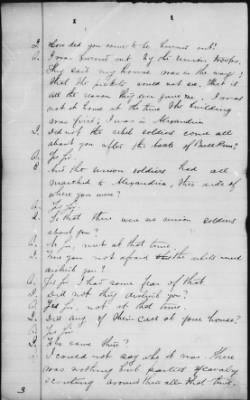 Q. How did you come to be turned out?
A. I was turned out by the Union troops.
They said my house was in the way;
that the pickets could not see, that is
all the reason they ever gave me. I was
not at home at the time the building
was fired; I was in Alexandria
Q. Did not the rebel soldiers come all
about you after the battle of Bull Run?
A. Yes Sir.
Q. And the Union soldiers had all
marched to Alexandria, this side of
where you were?
A. Yes Sir.
Q. So that there were no Union soldiers
about you?
A. No Sir, not at that time.
Q. Were you not afraid the rebels would
disturb you?
A. Yes Sir I had some fear of that.
Q. Did not they disturb you?
A. No Sir, not at that time.
Q. Did any of them call at your house?
A. Yes Sir
Q. Who came there?
A. I could not say who it was. There
was nothing but parties of cavalry
scouting around there all that time.
3